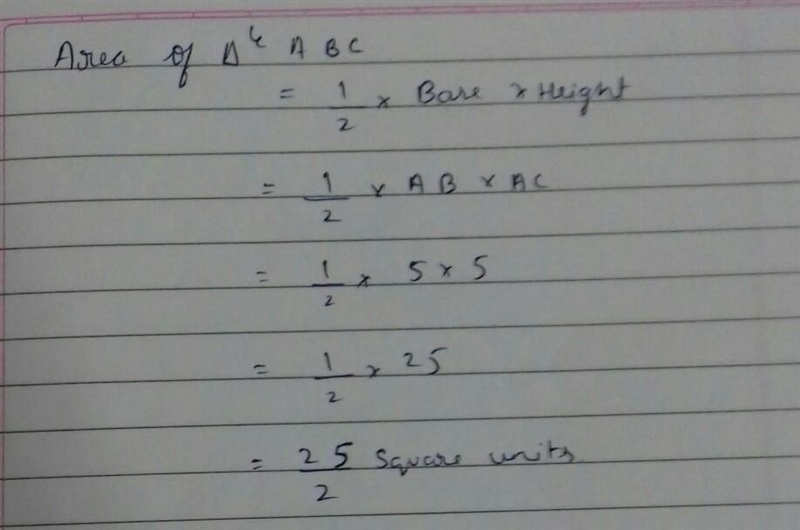 Area of Δle ABC
= 1/2 × Base × Height
= 1/2 × AB × AC
= 1/2 × 5 × 5
= 1/2 × 25
= 25/2 Square units